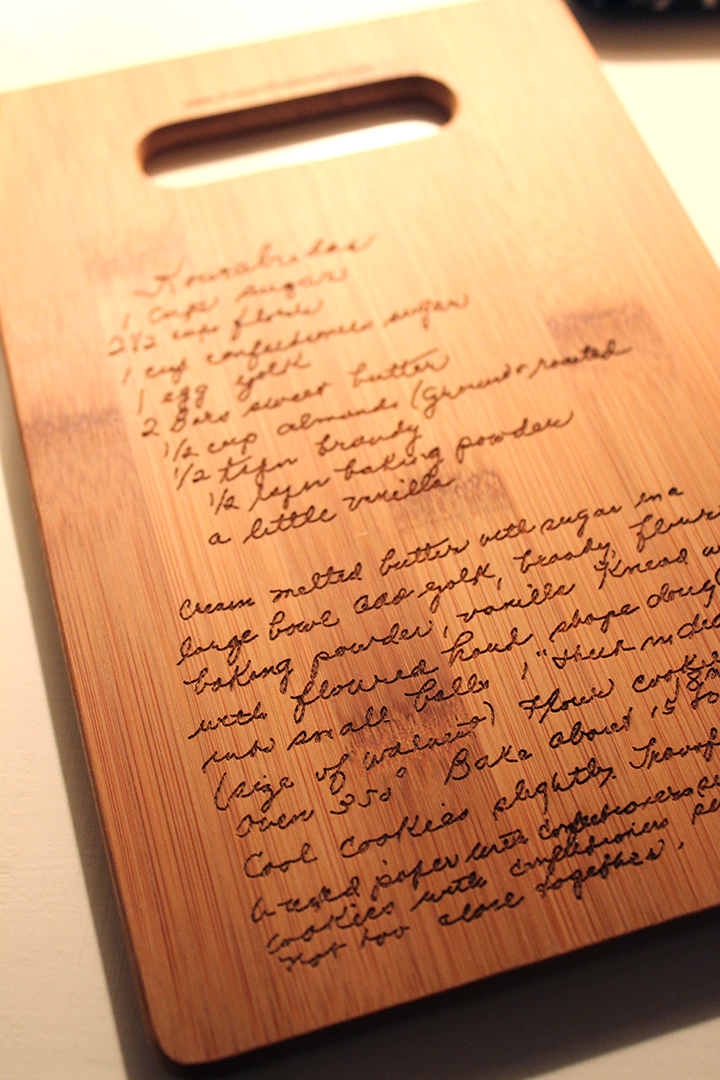 Kourabiedes
1 cup sugar
2 1/2 cup flour
1 cup confectioners sugar
1 egg yolk
2 Bars sweet butter
1/2 cup almonds (ground & roasted
1/2 tspn brandy
1/2 tspn baking powder
a little vanilla
Cream melted butter with sugar in a
large bowl add yolk, brandy, flour
baking powder, vanilla Knead
with floured hand shape doug
into small balls 1" thick in di
(size of walnuts) Flour cooki
oven 350° Bake about 15
Cool cookies slightly. Transf
waxed paper with confectioners
cookies with confectioners
Not too close together.